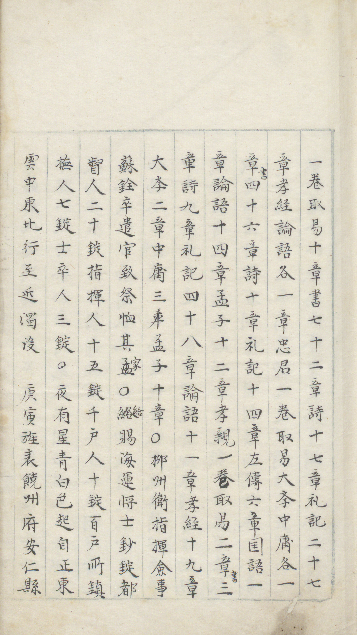 一卷取易十章書七十二章詩十七章礼記二十七
章孝經論語各一章忠君一卷取易大李中庸各一
章書四十六章詩十章礼記十四章左傳六章国語一
章論語十四章孟子十二章孝親一卷取易二章書三
章詩九章礼記四十八章論語十一章孝經十九章
大李二章中庸三章孟子十章〇柳州衛指揮僉事
蘇銓卒遣官致祭恤其家〇給賜海運將士鈔錠都
督人二十錠指揮人十五錠千戶人十錠百戶所鎮
撫人七錠士卒人三錠〇夜有星青白色起自正東
雲中東北行至近濁沒 庚寅旌表饒州府安仁縣